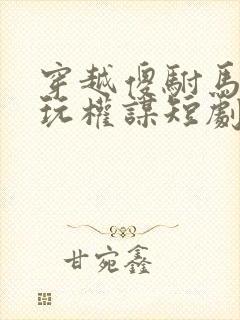 穿越傻駙馬
玩權謀短劇
甘宛鑫